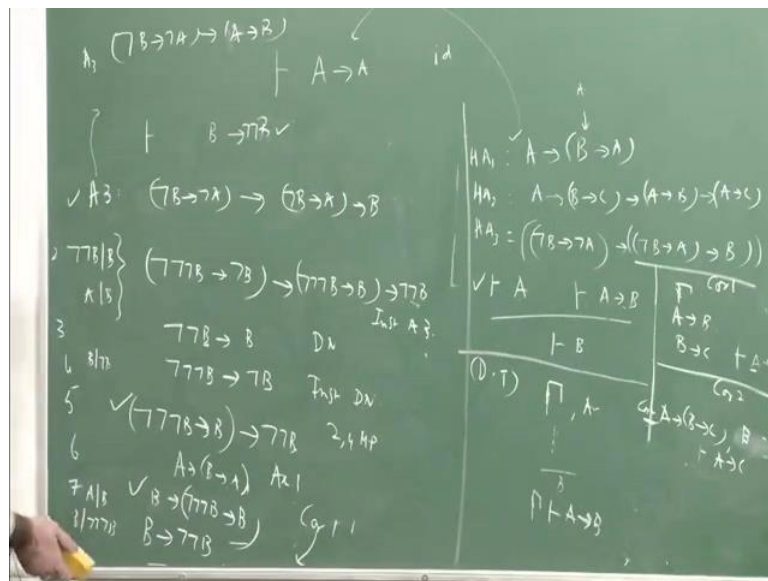 A3 (¬B→¬A)→(A→B)
⊢ A→A id
⊢ B→¬¬B ✓
✓ A3: (¬B→¬A) → (¬B→A)→B
2 ¬¬B|B (¬¬¬B→¬B)→(¬¬¬B→B)→¬¬B
A|B Inst A3.
3 ¬¬B→B DN
4 B/¬B ¬¬¬B→¬B Inst DN
5 ✓(¬¬¬B→B)→¬¬B 2,4 MP
6 A→(B→A) Ax 1
7 A/B ✓ B→(¬¬¬B→B
B/¬¬¬B B→¬¬B Cor 1
A
↓
HA1: ✓ A→(B→A)
HA2: A→(B→C)→(A→B)→(A→C)
HA3 = ((¬B→¬A)→((¬B→A)→B))
✓⊢ A ⊢ A→B
⊢ B
Cor1
Γ
A→B
B→C ⊢ A
Cor2
A→(B→C), B
⊢ A→C
(D.T) Γ, A
⋮
B
Γ⊢A→B